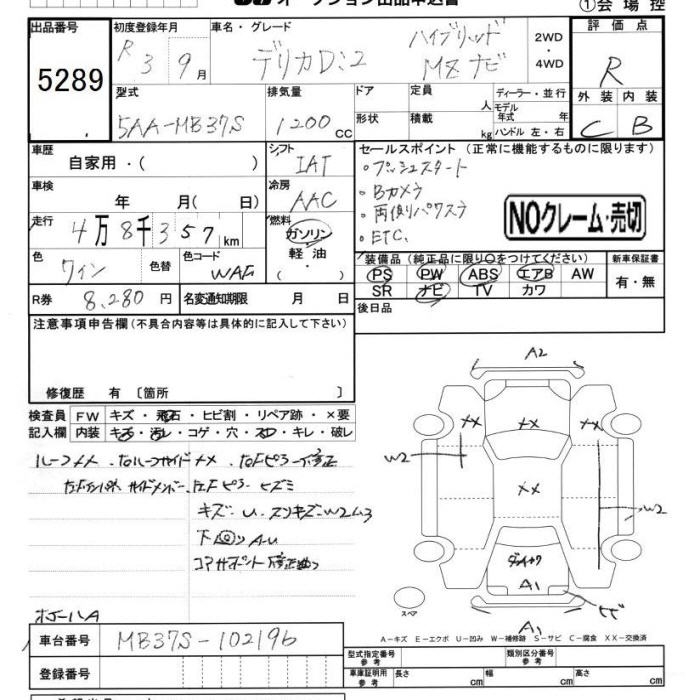 オークション出品申込書
①会場控
出品番号
5289
初度登録年月
R 3 9月
車名・グレード
デリカD:2 ハイブリッド MZナビ
2WD・4WD
評価点
R
外装 内装
C B
型式
5AA-MB37S
排気量
1200 cc
ドア
形状
定員 人
積載 kg
ディーラー・並行
モデル年式 年
ハンドル 左・右
車歴
自家用・( )
シフト
IAT
セールスポイント (正常に機能するものに限ります)
・プッシュスタート
・Bカメラ
・両側パワスラ
・ETC.
NOクレーム・売切
車検
年 月( 日)
冷房
AAC
走行
4万8千357km
燃料
ガソリン・軽油・( )
色
ワイン
色替
色コード
R券 8,280円
名変通知期限 月 日
装備品 (純正品に限り○をつけてください)
新車保証書
PS PW ABS エアB AW
SR ナビ TV カワ
有・無
後日品
注意事項申告欄(不具合内容等は具体的に記入して下さい)
修復歴 有 〔箇所 〕
検査員記入欄
FW キズ・飛石・ヒビ割・リペア跡・×要
内装 キズ・汚レ・コゲ・穴・スレ・キレ・破レ
キズ・U・スリキズ・W2ム3
コアサポート修正曲り
A2
XX XX XX
W2
XX
W2
A1
A1
スペア
A-キズ E-エクボ U-凹み W-補修跡 S-サビ C-腐食 XX-交換済
車台番号
MB37S-102196
登録番号
型式指定番号 参考
類別区分番号 参考
車庫証明用 参考
長さ cm
幅 cm
高さ cm